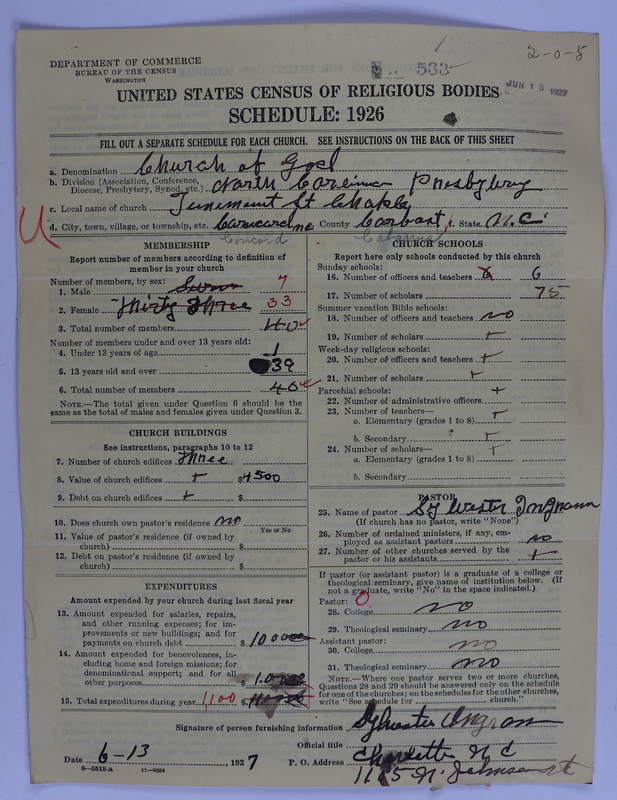 2-0-5
DEPARTMENT OF COMMERCE
BUREAU OF THE CENSUS
WASHINGTON
533
JUN 15 1927
UNITED STATES CENSUS OF RELIGIOUS BODIES
SCHEDULE: 1926
FILL OUT A SEPARATE SCHEDULE FOR EACH CHURCH. SEE INSTRUCTIONS ON THE BACK OF THIS SHEET
a. Denomination Church of God
b. Division (Association, Conference, Diocese, Presbytery, Synod, etc.) North Presbytery
c. Local name of church St
d. City, town, village, or township, etc. County f. State N.C
Concord Cabarrus
U
MEMBERSHIP
Report number of members according to definition of
member in your church
Number of members, by sex: 7
1. Male
2. Female Thirty Three 33
3. Total number of members 40
Number of members under and over 13 years old:
4. Under 13 years of age 1
5. 13 years old and over 39
6. Total number of members 40
NOTE.—The total given under Question 6 should be
same as the total of males and females given under Question 3.
CHURCH BUILDINGS
See instructions, paragraphs 10 to 12
7. Number of church edifices three
8. Value of church edifices $4500
9. Debt on church edifices $
10. Does church own pastor's residence no
Yes or No
11. Value of pastor's residence (if owned by
church) $
12. Debt on pastor's residence (if owned by
church) $
EXPENDITURES
Amount expended by your church during last fiscal year
13. Amount expended for salaries, repairs,
and other running expenses; for im-
provements or new buildings; and for
payments on church debt $
14. Amount expended for benevolences, in-
cluding home and foreign missions; for
denominational support; and for all
other purposes $
15. Total expenditures during year 1,100 $
CHURCH SCHOOLS
Report here only schools conducted by this church
Sunday schools:
16. Number of officers and teachers 6 6
17. Number of scholars 75
Summer vacation Bible schools:
18. Number of officers and teachers no
19. Number of scholars
Week-day religious schools:
20. Number of officers and teachers
21. Number of scholars
Parochial schools:
22. Number of administrative officers
23. Number of teachers—
a. Elementary (grades 1 to 8)
b. Secondary
24. Number of scholars—
a. Elementary (grades 1 to 8)
b. Secondary
PASTOR
25. Name of pastor Sylvester
(If church has no pastor, write "None")
26. Number of ordained ministers, if any, em-
ployed as assistant pastors no
27. Number of other churches served by the
pastor or his assistants 1
If pastor (or assistant pastor) is a graduate of a college or
theological seminary, give name of institution below. (If
not a graduate, write "No" in the space indicated.)
Pastor: 0
28. College no
29. Theological seminary no
Assistant pastor:
30. College no
31. Theological seminary no
NOTE.—Where one pastor serves two or more churches,
Questions 28 and 29 should be answered only on the schedule
for one of the churches; on the schedules for the other churches,
write "See schedule for church."
Signature of person furnishing information Sylvester Ingram
Official title
Date 6-13 1927 P. O. Address Charlotte N C
1105 N. Johnson st
8-5515a 11-9064